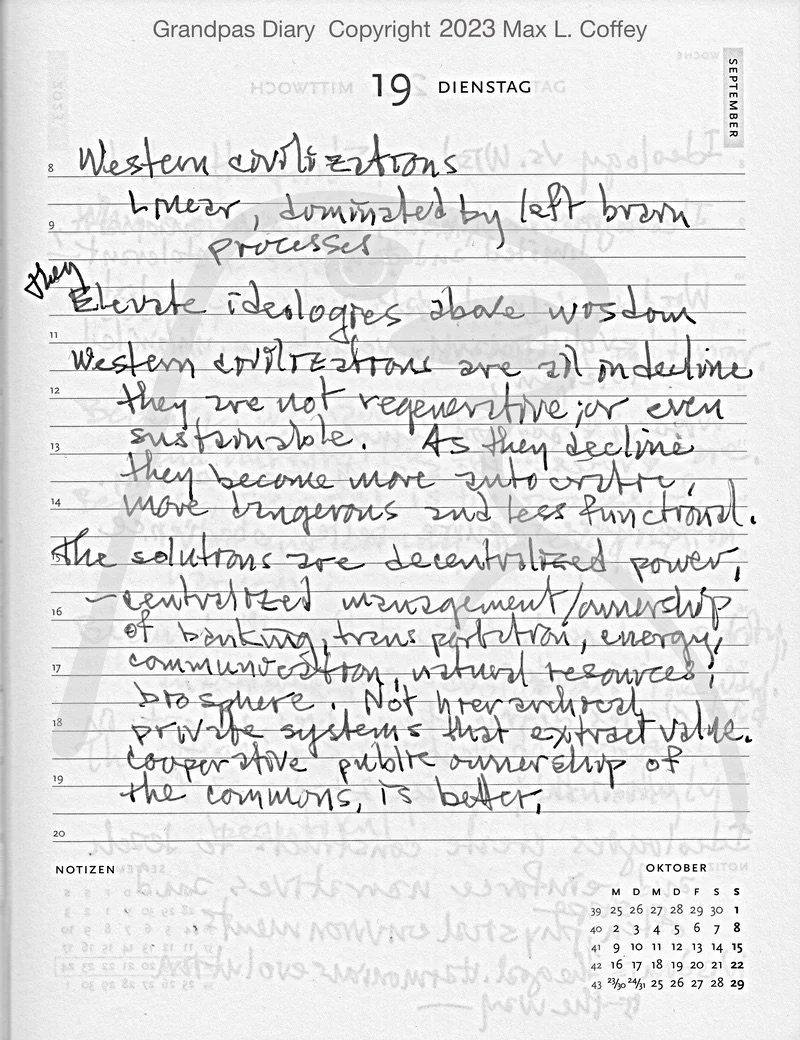 Grandpas Diary Copyright 2023 Max L. Coffey
19 DIENSTAG
SEPTEMBER
8 Western civilizations
Linear, dominated by left brain
9
processes
they
Elevate ideologies above wisdom
11
Western civilizations are all in decline
12
they are not regenerative, or even
13 sustainable. As they decline
they become more autocratic,
14 more dangerous and less functional.
15 The solutions are decentralized power,
– centralized management/ownership
16
of banking, transportation, energy,
17 communication, natural resources,
biosphere. Not hierarchical
18 private systems that extract value.
cooperative public ownership of
19 the commons, is better.
20
NOTIZEN
OKTOBER
M D M D F S S
39 25 26 27 28 29 30 1
40 2 3 4 5 6 7 8
41 9 10 11 12 13 14 15
42 16 17 18 19 20 21 22
43 23/30 24/31 25 26 27 28 29